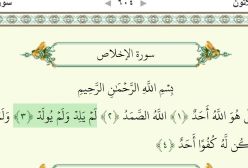 ٦٠٤
سورة الإخلاص
بِسْمِ اللَّهِ الرَّحْمَٰنِ الرَّحِيمِ
هُوَ اللَّهُ أَحَدٌ ﴿١﴾ اللَّهُ الصَّمَدُ ﴿٢﴾ لَمْ يَلِدْ وَلَمْ يُولَدْ ﴿٣﴾
لَّهُ كُفُوًا أَحَدٌ ﴿٤﴾